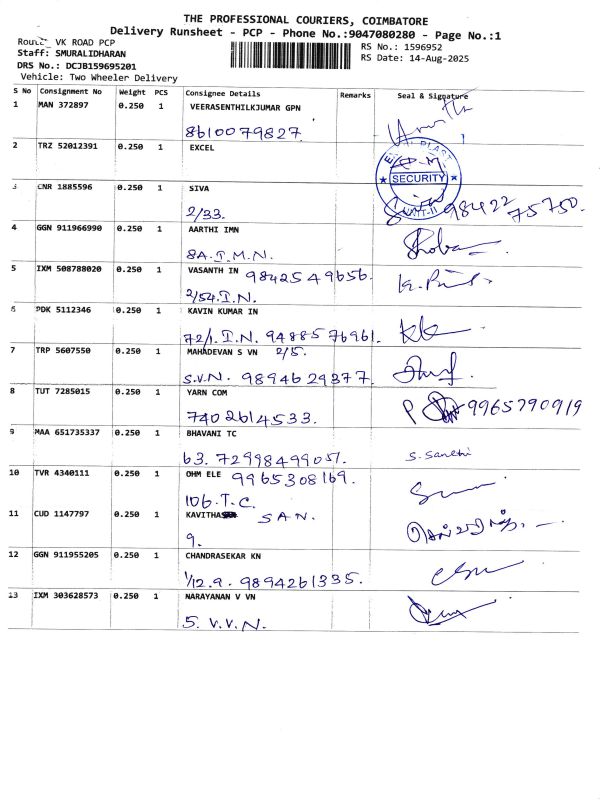 THE PROFESSIONAL COURIERS, COIMBATORE
Delivery Runsheet - PCP - Phone No.:9047080280 - Page No.:1
Route: VK ROAD PCP
Staff: SMURALIDHARAN
DRS No.: DCJB159695201
Vehicle: Two Wheeler Delivery
RS No.: 1596952
RS Date: 14-Aug-2025
S No Consignment No Weight PCS Consignee Details Remarks Seal & Signature
1 MAN 372897 0.250 1 VEERASENTHILKJUMAR GPN
8610079827
2 TRZ 52012391 0.250 1 EXCEL
PLAST
SECURITY
UNIT-II
3 CNR 1885596 0.250 1 SIVA
2/33. 98422
75750.
4 GGN 911966990 0.250 1 AARTHI IMN
8A.I.M.N.
5 IXM 508788020 0.250 1 VASANTH IN 9842549656.
2/54.I.N.
6 PDK 5112346 0.250 1 KAVIN KUMAR IN
72/1.I.N. 9488576961.
7 TRP 5607550 0.250 1 MAHADEVAN S VN 2/5.
S.V.N. 9894629377.
8 TUT 7285015 0.250 1 YARN COM
7402614533. 9965790919
9 MAA 651735337 0.250 1 BHAVANI TC
63. 7299849905. S. Santhi
10 TVR 4340111 0.250 1 OHM ELE 9965308169.
106.T.C.
11 CUD 1147797 0.250 1 KAVITHA S A N.
9.
12 GGN 911955205 0.250 1 CHANDRASEKAR KN
1/12.9. 9894261335.
13 IXM 303628573 0.250 1 NARAYANAN V VN
5. V.V.N.